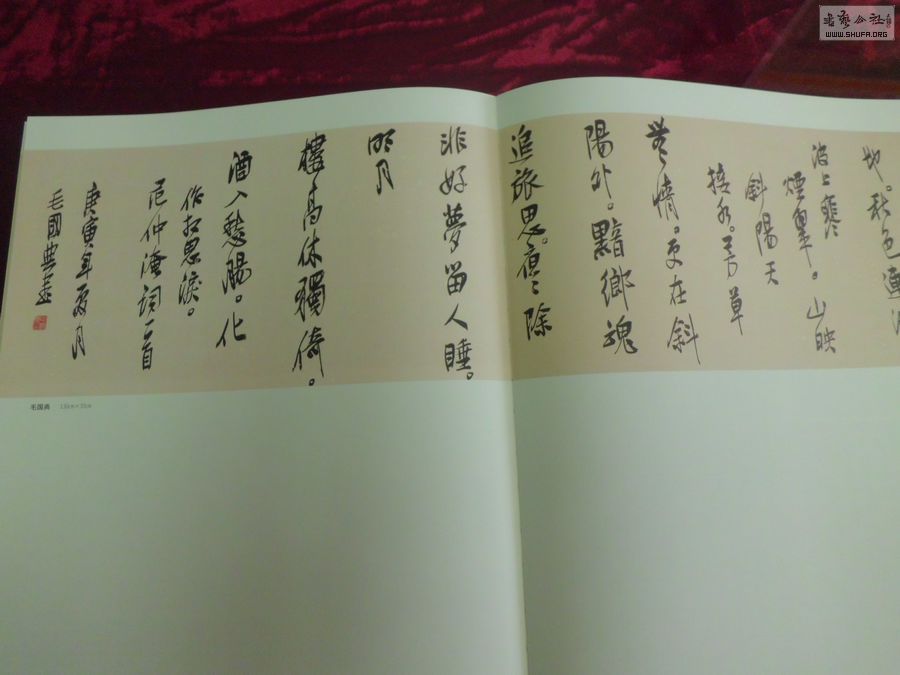 地。秋色連波
波上寒
煙翠。山映
斜陽天
接水。芳草
無情。更在斜
陽外。黯鄉魂
追旅思。夜夜除
非好夢留人睡。
明月
樓高休獨倚。
酒入愁腸。化
作相思淚。
范仲淹詞一首
庚寅年夏月
毛國典書
毛国典
WWW.SHUFA.ORG